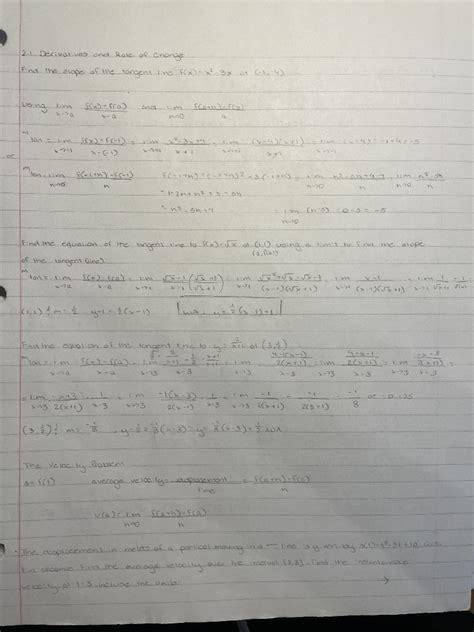 2.1 Derivatives and Rate of Change
Find the slope of the tangent line f(x)=x²-3x at (-1,4)
Using lim x→a f(x)-f(a) / x-a and lim h→0 f(a+h)-f(a) / h
m tan = lim x→-1 f(x)-f(-1) / x-(-1) = lim x→-1 x²-3x-4 / x+1 = lim x→-1 (x-4)(x+1) / x+1 = lim x→-1 (x-4) = -1-4 = -5
or
m tan = lim h→0 f(-1+h)-f(-1) / h f(-1+h) = (-1+h)²-3(-1+h) = lim h→0 h²-5h+4-4 / h = lim h→0 h²-5h / h
= 1-2h+h²+3-3h
= h²-5h+4 = lim h→0 (h-5) = 0-5 = -5
Find the equation of the tangent line to f(x)=√x at (1,1) using a limit to find the slope
(a, f(a))
of the tangent line.
m tan = lim x→a f(x)-f(a) / x-a = lim x→1 √x-1 / x-1 (√x+1 / √x+1) = lim x→1 = lim x→1 x-1 / (x-1)(√x+1) = lim x→1 1 / √x+1
(1,1) m=½ y-1=½(x-1) y=½(x-1)+1
Find the equation of the tangent line to y= 2/x+1 at (3,½)
m tan = lim x→a f(x)-f(a) / x-a = lim x→3
= lim x→3 -x+3 / 2(x+1) · 1 / x-3 = lim x→3 -1(x-3) / 2(x+1) · 1 / x-3 = lim x→3 -1 / 2(x+1) = -1 / 2(3+1) = -1/8 or -0.125
(3,½) m=-1/8 y-½=-1/8(x-3) = y=-1/8(x-3)+½
The Velocity Problem
s=f(t) average velocity = displacement / time = f(a+h)-f(a) / h
v(a) = lim h→0 f(a+h)-f(a) / h
The displacement in meters of a particle moving in a line is given by
t in seconds. Find the average velocity over the interval Find the instantaneous
velocity at t=3, include the units.